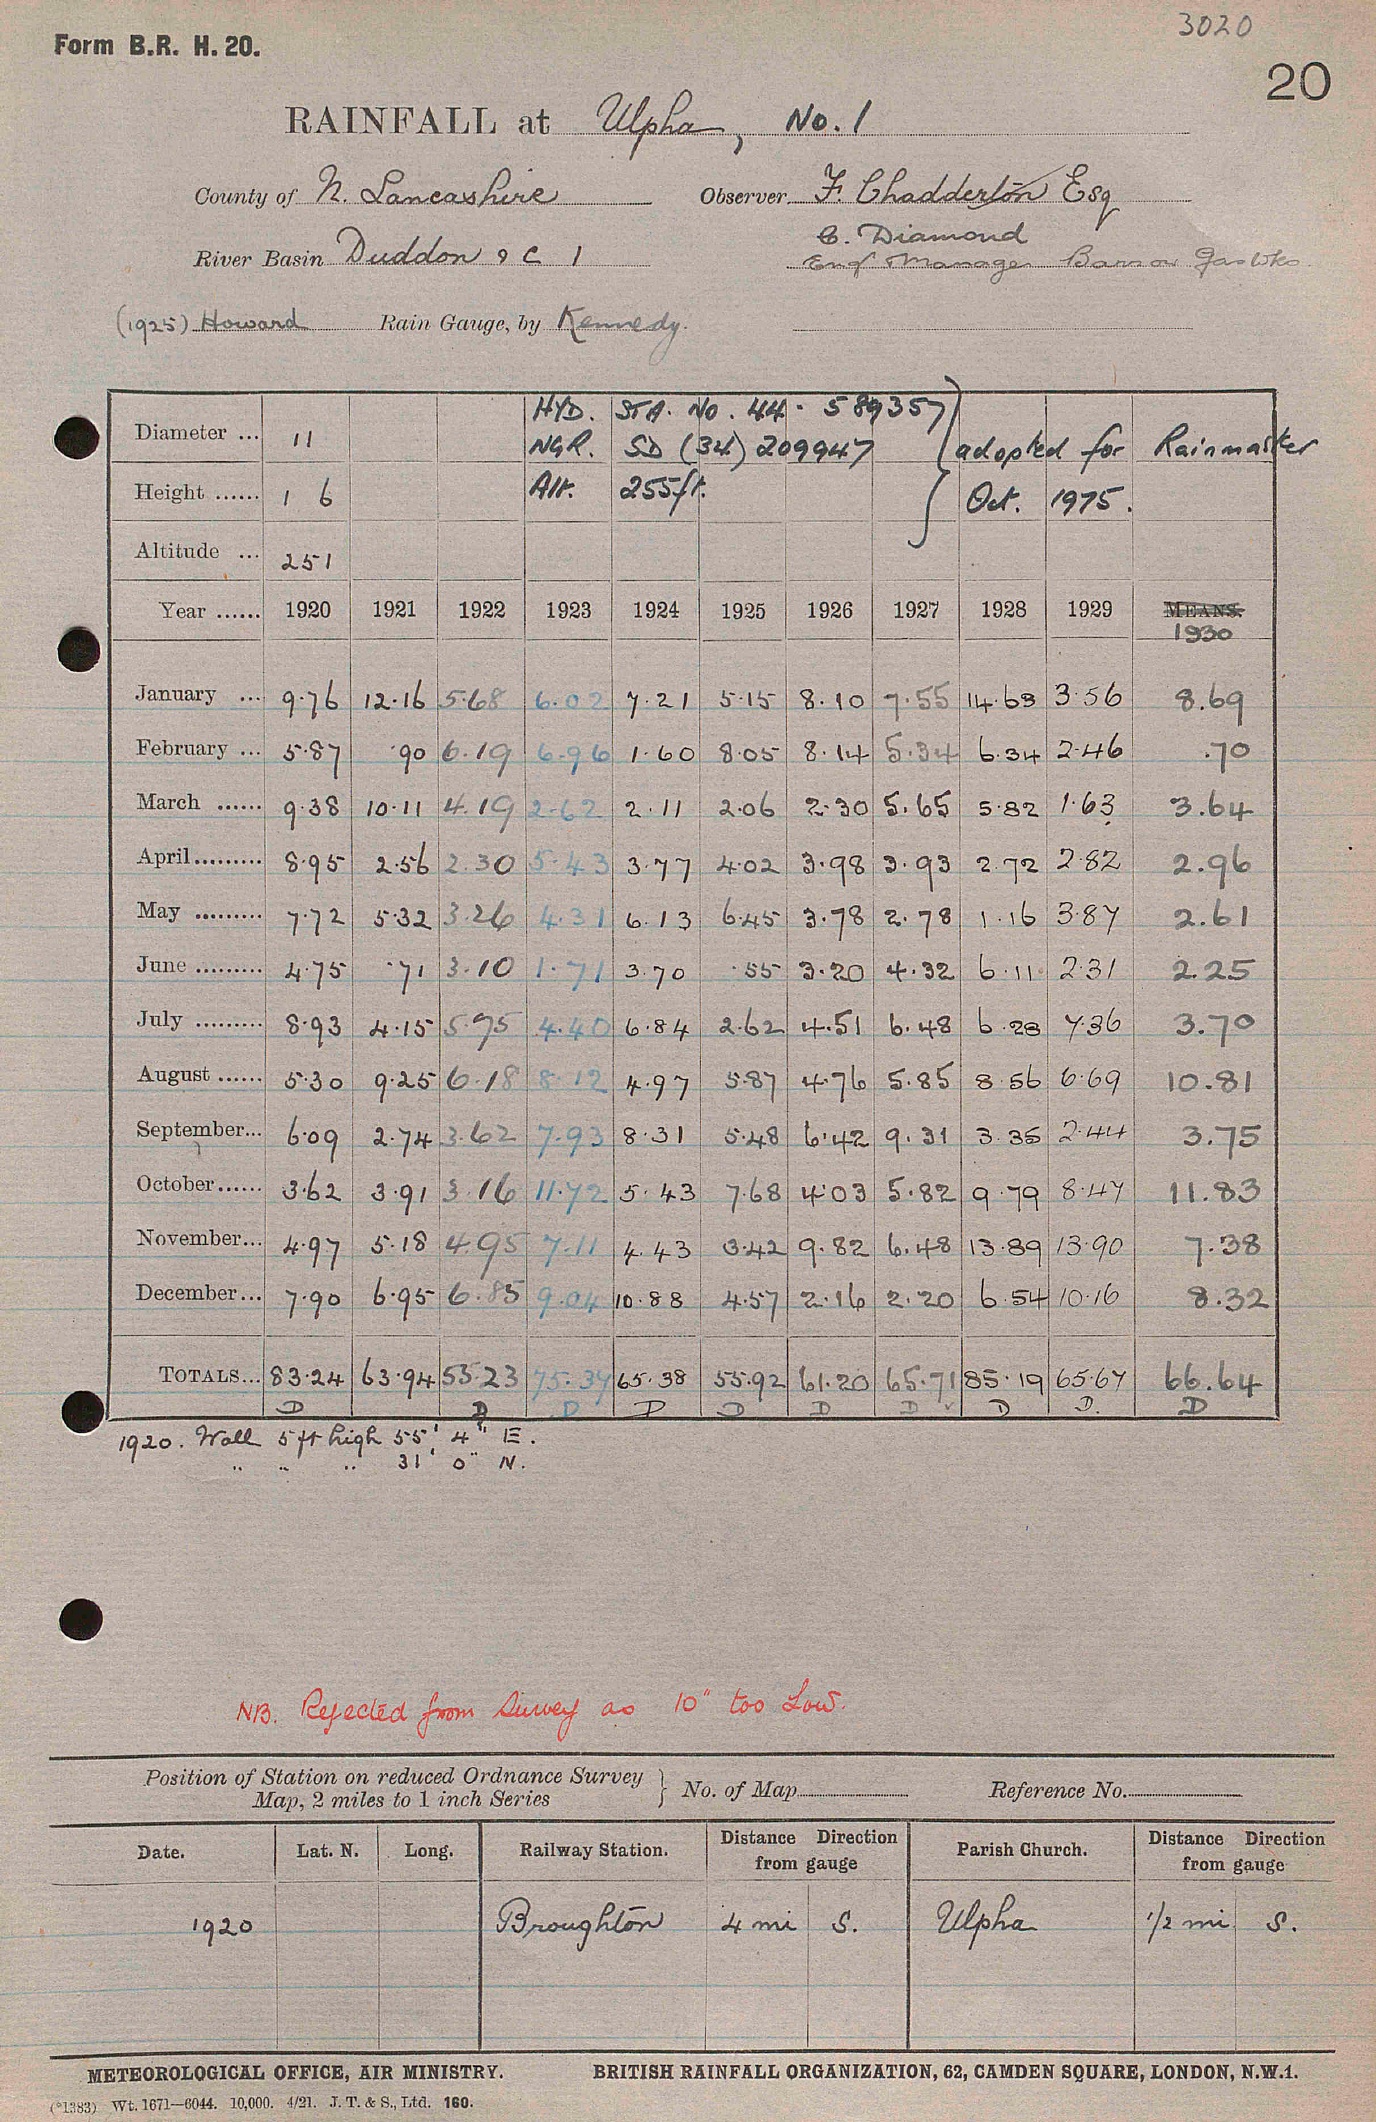 3020
Form B.R. H. 20.
20
RAINFALL at Ulpha, No. 1
County of N. Lancashire Observer F. Chadderton Esq
C. Diamond
River Basin Duddon & C 1 Eng Manager Barrow Gas Wks.
(1925) Howard Rain Gauge, by Kennedy.
HYD. STA. No. 44. 589357
Diameter ... 11 NGR. SD (34) 209947 } adopted for Rainmaster
Height ...... 1 6 Alt. 255ft. Oct. 1975.
Altitude ... 251
Year ...... 1920 1921 1922 1923 1924 1925 1926 1927 1928 1929 MEANS.
1930
January ... 9.76 12.16 5.68 6.02 7.21 5.15 8.10 7.55 14.63 3.56 8.69
February ... 5.87 .90 6.19 6.96 1.60 8.05 8.14 5.34 6.34 2.46 .70
March ...... 9.38 10.11 4.19 2.62 2.11 2.06 2.30 5.65 5.82 1.63 3.64
April......... 8.95 2.56 2.30 5.43 3.77 4.02 3.98 3.93 2.72 2.82 2.96
May ......... 7.72 5.32 3.26 4.31 6.13 6.45 3.78 2.78 1.16 3.87 2.61
June ......... 4.75 .71 3.10 1.71 3.70 .55 3.20 4.32 6.11 2.31 2.25
July ......... 8.93 4.15 5.75 4.40 6.84 2.62 4.51 6.48 6.28 7.36 3.70
August ...... 5.30 9.25 6.18 8.12 4.97 5.87 4.76 5.85 8.56 6.69 10.81
September... 6.09 2.74 3.62 7.93 8.31 5.48 6.42 9.31 3.35 2.44 3.75
October...... 3.62 3.91 3.16 11.72 5.43 7.68 4.03 5.82 9.79 8.47 11.83
November... 4.97 5.18 4.95 7.11 4.43 3.42 9.82 6.48 13.89 13.90 7.38
December... 7.90 6.95 6.85 9.04 10.88 4.57 2.16 2.20 6.54 10.16 8.32
TOTALS... 83.24 63.94 55.23 75.37 65.38 55.92 61.20 65.71 85.19 65.67 66.64
D D D D D D D D D. D
1920. Wall 5 ft high 55' 4" E.
" " " 31' 0" N.
NB. Rejected from Survey as 10" too Low.
Position of Station on reduced Ordnance Survey
Map, 2 miles to 1 inch Series } No. of Map Reference No.
Date. Lat. N. Long. Railway Station. Distance from gauge Direction Parish Church. Distance from gauge Direction
1920 Broughton 4 mi S. Ulpha 1/2 mi S.
METEOROLOGICAL OFFICE, AIR MINISTRY. BRITISH RAINFALL ORGANIZATION, 62, CAMDEN SQUARE, LONDON, N.W.1.
(*1383) Wt. 1671—6044. 10,000. 4/21. J. T. & S., Ltd. 160.